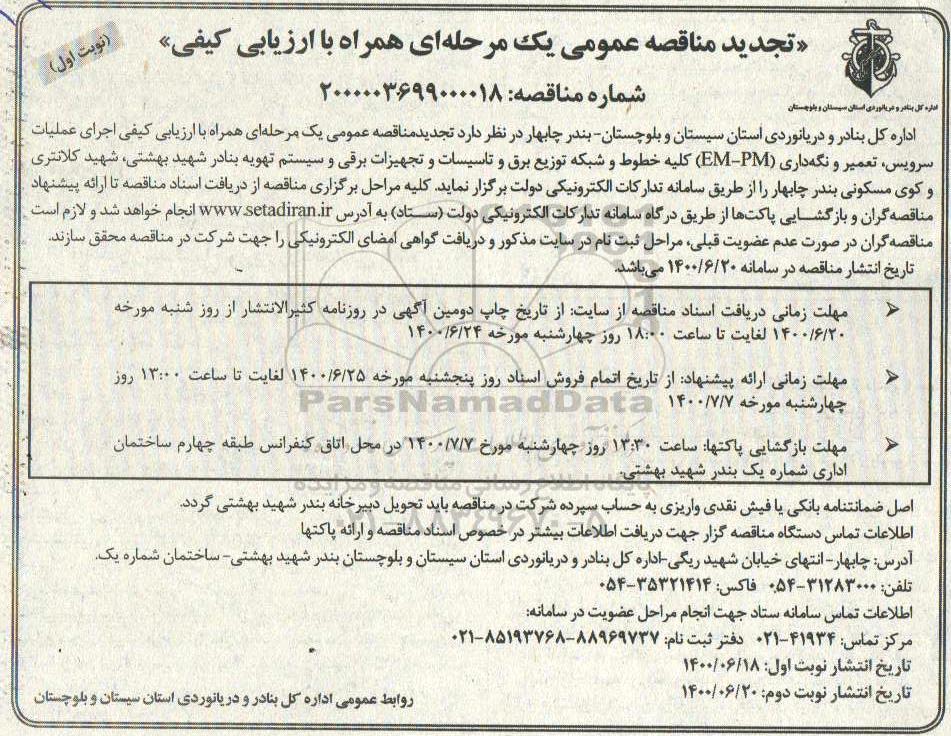 «تجدید مناقصه عمومی یک مرحله‌ای همراه با ارزیابی کیفی»
(نوبت اول)
اداره کل بنادر و دریانوردی استان سیستان و بلوچستان
شماره مناقصه: ۲۰۰۰۰۰۳۶۹۹۰۰۰۰۱۸
اداره کل بنادر و دریانوردی استان سیستان و بلوچستان- بندر چابهار در نظر دارد تجدیدمناقصه عمومی یک مرحله‌ای همراه با ارزیابی کیفی اجرای عملیات
سرویس، تعمیر و نگه‌داری (EM-PM) کلیه خطوط و شبکه توزیع برق و تاسیسات و تجهیزات برقی و سیستم تهویه بنادر شهید بهشتی، شهید کلانتری
و کوی مسکونی بندر چابهار را از طریق سامانه تدارکات الکترونیکی دولت برگزار نماید. کلیه مراحل برگزاری مناقصه از دریافت اسناد مناقصه تا ارائه پیشنهاد
مناقصه‌گران و بازگشایی پاکت‌ها از طریق درگاه سامانه تدارکات الکترونیکی دولت (ستاد) به آدرس www.setadiran.ir انجام خواهد شد و لازم است
مناقصه‌گران در صورت عدم عضویت قبلی، مراحل ثبت نام در سایت مذکور و دریافت گواهی امضای الکترونیکی را جهت شرکت در مناقصه محقق سازند.
تاریخ انتشار مناقصه در سامانه ۱۴۰۰/۶/۲۰ می‌باشد.
➢ مهلت زمانی دریافت اسناد مناقصه از سایت: از تاریخ چاپ دومین آگهی در روزنامه کثیرالانتشار از روز شنبه مورخه
۱۴۰۰/۶/۲۰ لغایت تا ساعت ۱۸:۰۰ روز چهارشنبه مورخه ۱۴۰۰/۶/۲۴
➢ مهلت زمانی ارائه پیشنهاد: از تاریخ اتمام فروش اسناد روز پنجشنبه مورخه ۱۴۰۰/۶/۲۵ لغایت تا ساعت ۱۳:۰۰ روز
چهارشنبه مورخه ۱۴۰۰/۷/۷
➢ مهلت بازگشایی پاکتها: ساعت ۱۳:۳۰ روز چهارشنبه مورخ ۱۴۰۰/۷/۷ در محل اتاق کنفرانس طبقه چهارم ساختمان
اداری شماره یک بندر شهید بهشتی.
ParsNamadData
پایگاه اطلاع رسانی مناقصه و مزایده
اصل ضمانتنامه بانکی یا فیش نقدی واریزی به حساب سپرده شرکت در مناقصه باید تحویل دبیرخانه بندر شهید بهشتی گردد.
اطلاعات تماس دستگاه مناقصه گزار جهت دریافت اطلاعات بیشتر در خصوص اسناد مناقصه و ارائه پاکتها
آدرس: چابهار- انتهای خیابان شهید ریگی-اداره کل بنادر و دریانوردی استان سیستان و بلوچستان بندر شهید بهشتی- ساختمان شماره یک.
تلفن: ۳۱۲۸۳۰۰۰-۰۵۴ فاکس: ۳۵۳۲۱۴۱۴-۰۵۴
اطلاعات تماس سامانه ستاد جهت انجام مراحل عضویت در سامانه:
مرکز تماس: ۴۱۹۳۴-۰۲۱ دفتر ثبت نام: ۸۸۹۶۹۷۳۷-۸۵۱۹۳۷۶۸-۰۲۱
تاریخ انتشار نوبت اول: ۱۴۰۰/۰۶/۱۸
تاریخ انتشار نوبت دوم: ۱۴۰۰/۰۶/۲۰
روابط عمومی اداره کل بنادر و دریانوردی استان سیستان و بلوچستان